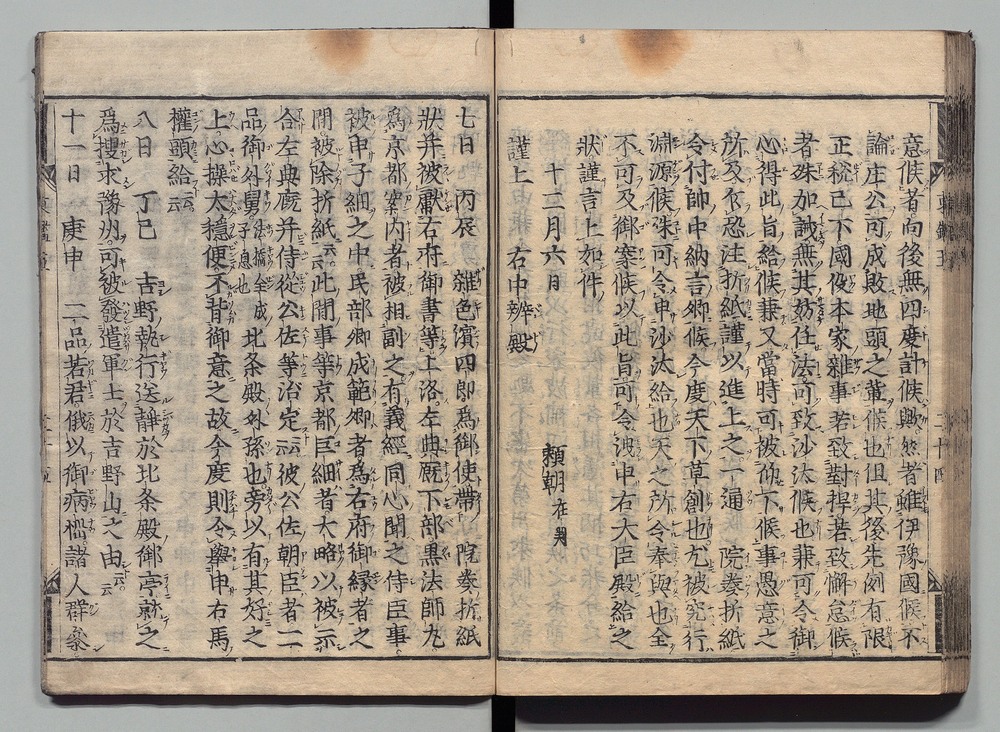 意候者向後無四度計候歟然者雖伊豫國候不
論庄公可成敗地頭之輩候也但其後先例有限
正税已下國役本家雜事若致對捍若致懈怠候
者殊加誡無其妨任法可致沙汰候也兼可令御
心得此旨給候兼又當時可被仰下候事愚意之
所及乍恐注折紙謹以進上之一通院奏折紙
令付帥中納言卿候今度天下草創也尤被究行
淵源候殊可令申沙汰給也天之所令奉與也全
不可及御案候以此旨可令洩申右大臣殿給之
狀謹言上如件
十二月六日 頼朝在判
謹上 右中辨殿
七日 丙辰 雜色濱四郎爲御使帶 院奏折紙
狀并被獻右府御書等上洛左典厩下部黒法師丸
爲京都案内者被相副之有義經同心聞之侍臣事
被申子細之中民部卿成範卿者爲右府御縁者之
間被除折紙云云此間事等京都巨細者大略以被示
合左典厩并侍從公佐等治定云云彼公佐朝臣者二
品御外舅法橋全成子息也北条殿外孫也旁以有其好之
上心操太穩便不背御意之故今度則令擧申右馬
權頭給云云
八日 丁巳 吉野執行送靜於北条殿御亭就之
爲搜求豫州可被發遣軍士於吉野山之由云云
十一日 庚申 二品若君俄以御病惱諸人群參